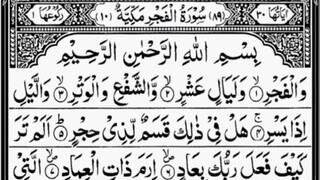 اٰيَاتُهَا ٣٠ (٨٩) سُوْرَةُ الْفَجْرِ مَكِّيَّةٌ (١٠) رُكُوْعُهَا ١
بِسْمِ اللّٰهِ الرَّحْمٰنِ الرَّحِيْمِ
وَالْفَجْرِ ۙ﴿١﴾ وَلَيَالٍ عَشْرٍ ۙ﴿٢﴾ وَّالشَّفْعِ وَالْوَتْرِ ۙ﴿٣﴾ وَالَّيْلِ
اِذَا يَسْرِ ۚ﴿٤﴾ هَلْ فِيْ ذٰلِكَ قَسَمٌ لِّذِيْ حِجْرٍ ؕ﴿٥﴾ اَلَمْ تَرَ
كَيْفَ فَعَلَ رَبُّكَ بِعَادٍ ۙ﴿٦﴾ اِرَمَ ذَاتِ الْعِمَادِ ۙ﴿٧﴾ الَّتِيْ